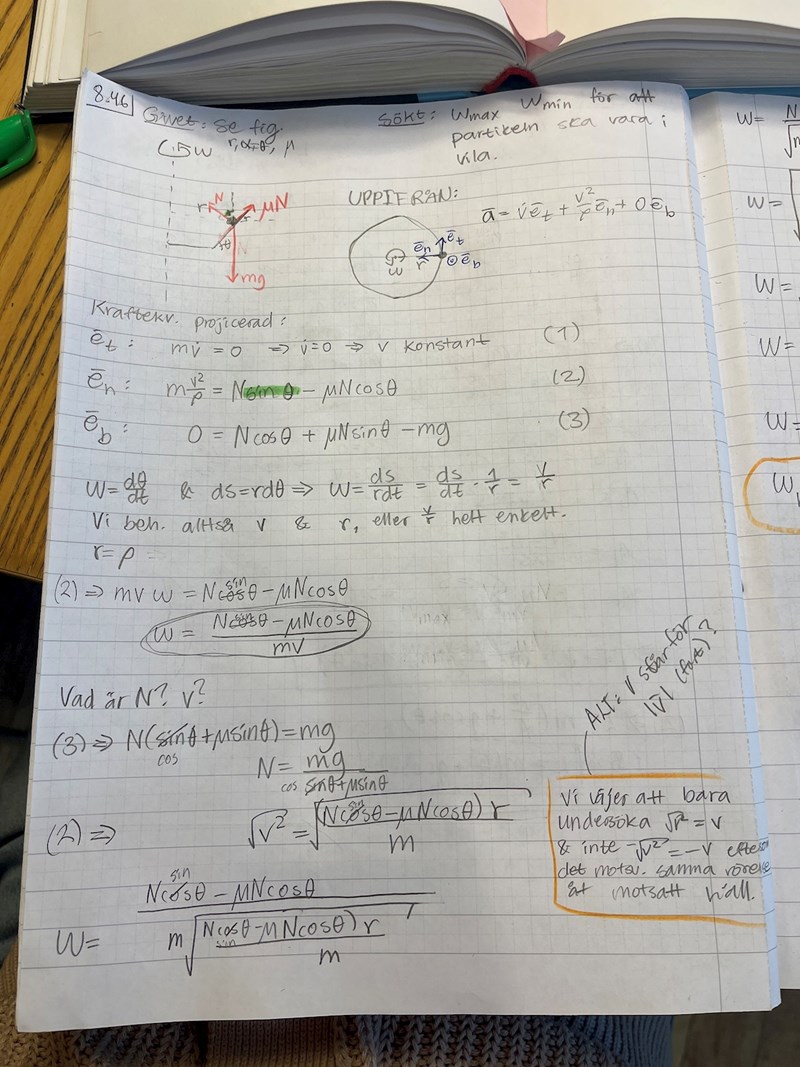 8.46
Givet: Se fig.
r, α=θ, μ
Sökt: Wmax Wmin för att
partikeln ska vara i
vila.
ω
N
μN
r
θ
mg
UPPIFRÅN:
ēt
ēn
r
ω
ēb
ā = v̇ēt + v²/ρ ēn + 0ēb
Kraftekv. projicerad:
ēt: mv̇ = 0 ⇒ v̇=0 ⇒ v konstant (1)
ēn: m v²/ρ = Nsinθ - μNcosθ (2)
ēb: 0 = Ncosθ + μNsinθ - mg (3)
W = dθ/dt & ds=rdθ ⇒ W = ds/rdt = ds/dt · 1/r = v/r
Vi beh. alltså v & r, eller v/r helt enkelt.
r = ρ =
(2) ⇒ mvω = Nsinθ - μNcosθ
ω = (Nsinθ - μNcosθ)/mv
Vad är N? v?
(3) ⇒ N(cosθ + μsinθ) = mg
N = mg/(cosθ + μsinθ)
(2) ⇒ √v² = √((Nsinθ - μNcosθ) r / m)
W = (Nsinθ - μNcosθ) / (m √((Nsinθ - μNcosθ) r / m))
ALT: v står för
|v̄| (fart)?
Vi väljer att bara
undersöka √v² = v
& inte -√v² = -v efters
det motsv. samma rörelse
åt motsatt håll.
W =
N
W =
W =
W =
W
W